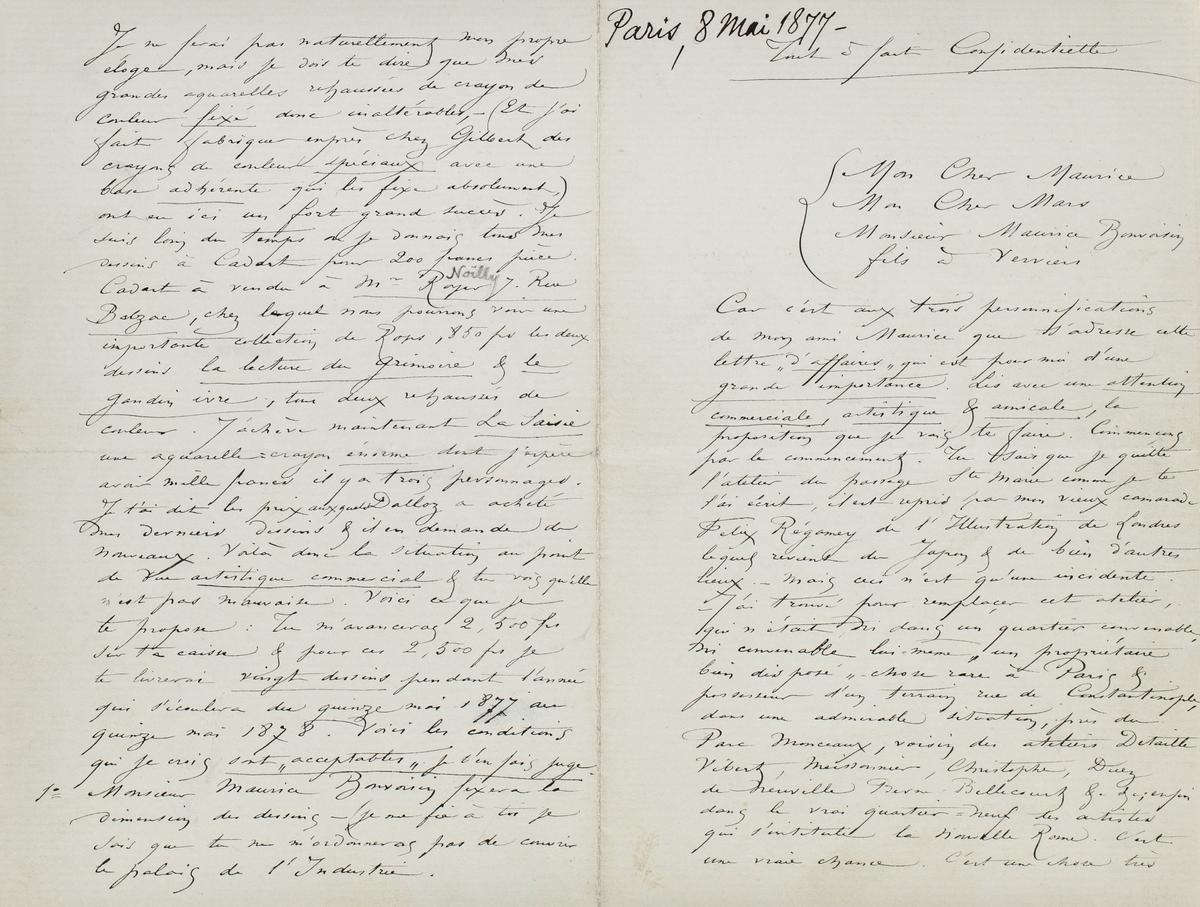 Paris, 8 Mai 1877-
Tout à fait Confidentielle
Mon Cher Maurice
Mon Cher Mars
Monsieur Maurice Bonvoisin
fils à Verviers
Car c'est aux trois personnifications
de mon ami Maurice que s'adresse cette
lettre „d'affaires„ qui est pour moi d'une
grande importance. Lis avec une attention
commerciale, artistique & amicale, la
proposition que je vais te faire. Commençons
par le commencement. Tu sais que je quitte
l'atelier du passage Ste Marie comme je te
l'ai écrit, il est repris par mon vieux camarade
Félix Régamey de l'Illustration de Londres
lequel revient du Japon & de bien d'autres
lieux. – Mais ceci n'est qu'une incidente.
J'ai trouvé pour remplacer cet atelier,
qui n'était ni dans un quartier convenable
ni convenable lui-même, un propriétaire
bien disposé „ chose rare à Paris &
possesseur d'un terrain rue de Constantinople,
dans une admirable situation, près du
Parc Monceaux, voisin des ateliers Detaille
Vibert, Meissonnier, Christophe, Duez
de Neuville Berne-Bellecourt &. &; enfin
dans le vrai quartier=neuf des artistes
qui s'intitule la Nouvelle Rome. C'est
une vraie chance. C'est une chose très
Je ne ferai pas naturellement mon propre
éloge, mais je dois te dire que mes
grandes aquarelles rehaussées de crayon de
couleur fixé donc inaltérables, – (Et j'ai
fait fabriquer exprès chez Gilbert des
crayons de couleur spéciaux avec une
base adhérente qui les fixe absolument,)
ont eu ici un fort grand succès. Je
suis loin du temps où je donnais tous mes
dessins à Cadart pour 200 francs pièce.
Noilly
Cadart à vendu à Mr Royer 7. Rue
Balzac, chez lequel nous pourrons voir une
importante collection de Rops, 850 frs les deux
dessins la lecture du Grimoire & le
Gandin ivre, tous deux rehaussés de
couleur. J'achève maintenant La Saisie
une aquarelle=crayon énorme dont j'espère
avoir mille francs il y a trois personnages.
Je t'ai dit les prix auxquels Dalloz a acheté
mes derniers dessins & il en demande de
nouveaux. Voilà donc la situation au point
de vue artistique commercial & tu vois qu'elle
n'est pas mauvaise. Voici ce que je
te propose : Tu m'avanceras 2,500 frs
sur ta caisse & pour ces 2,500 frs je
te livrerai vingt dessins pendant l'année
qui s'écoulera du quinze mai 1877 au
quinze mai 1878. Voici les conditions
qui je crois sont „acceptables„ je t'en fais juge.
1o Monsieur Maurice Bonvoisin fixera la
dimension des dessins – (je me fie à toi je
sais que tu ne m'ordonneras pas de couvrir
le palais de l'Industrie.